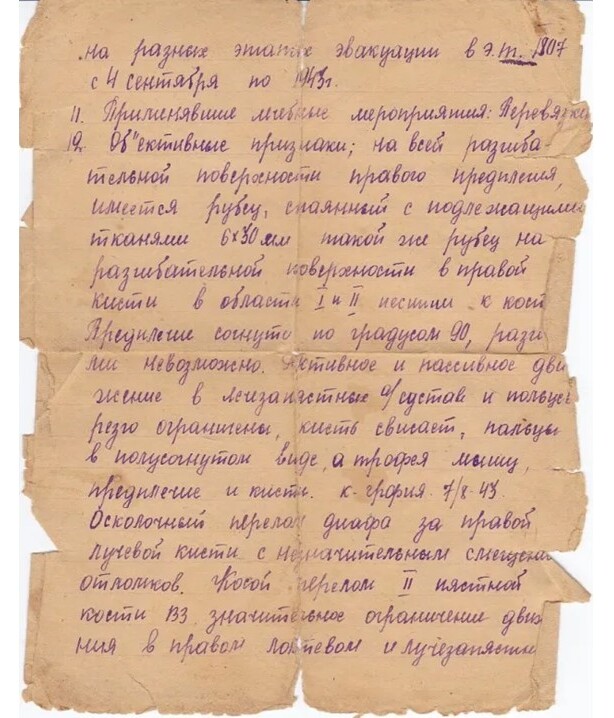 на разных этапах эвакуации в э.т. 1807
с 4 сентября по 1943г.
11. Применявшие лечебные мероприятия: Перевязки
12. Об"ективные признаки; на всей разгиба-
тельной поверхности правого предплечия,
имеется рубец, спаянный с подлежащими
тканями 6x30 мм такой же рубец на
разгибательной поверхности в правой
кисти в области I и II
Предплечие согнуто по градусом 90, разги
ми невозможно. Активное и пассивное дви
жение в лучезапястных сустав и пальцы
резко ограничены, кисть свисает, пальцы
в полусогнутом виде, атрофея мышц,
предплечие и кисти. к-графия. 7/8-43.
Осколочный перелом диафа за правой
лучевой кисти с незначительным смещени
отломков. Косой перелом II пястной
кости ВЗ значительное ограничение движ
ния в правом локтевом и лучезапястн